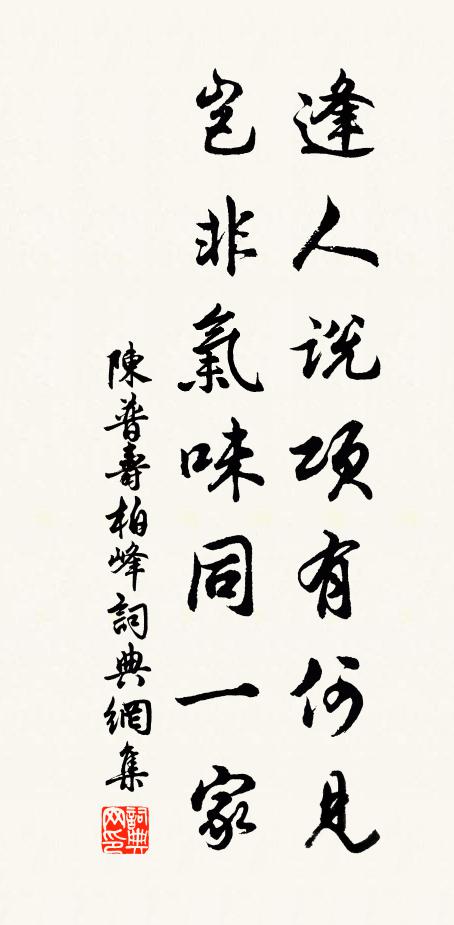 逢人説項有何見
豈非氣味同一家
陳普壽柏峰詞典網集
詞典网印